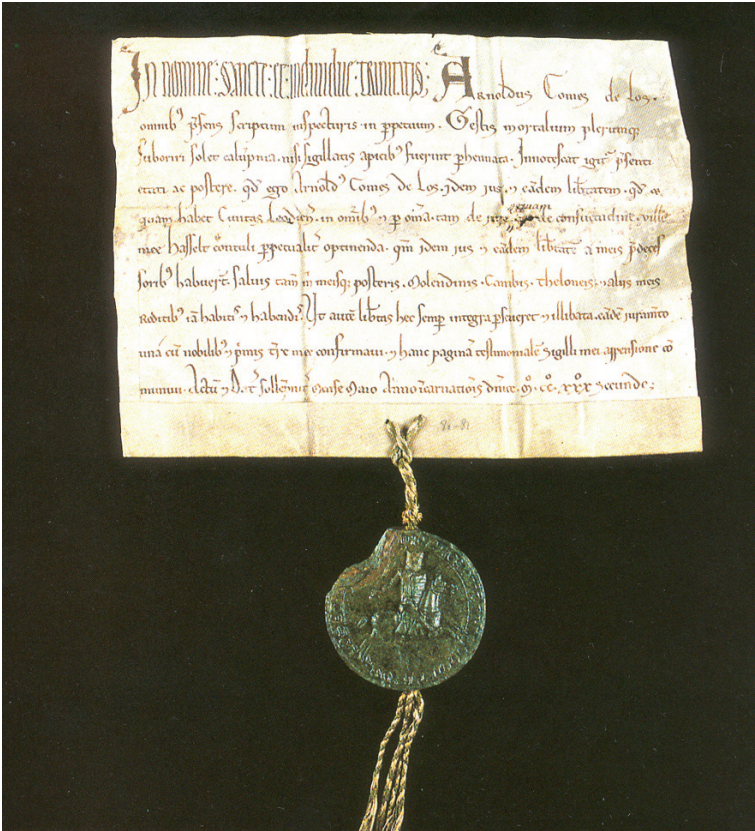 In nomine: sancte: et individue: trinitatis: Arnoldus Comes de Los.
omnib' p̄sens scriptum inspecturis in ꝑpetuum. Gestis mortalium plerumq;
suboriri solet calūpnia. nisi sigillatis apicib' fuerint ꝑhennata. Innotescat igit᷑ p̄senti
etati ac postere. qd̄ ego Arnold' Comes de Los. idem ius. ⁊ eādem lib̄tatem. qd̄
quam habet Civitas Leodien̄. in om̄ib' ⁊ ꝑ oīa. tam de iure quam de consuetudine. ville
mee Hasselt contuli ꝑpetualit᷑ optinenda. qm̄ idem ius ⁊ eādem lib̄tatē a meis p̄deces
sorib' habuer̄t. salvis tam̄ m̄ meisq; posteris. Molendinis. Cambis. Theloneis. ⁊ aliis meis
Redditib' iā habitis ⁊ habendis. Ut autē lib̄tas hec semꝑ integra ꝑseveret ⁊ illibata. eādē iuram̄to
unā cū nobilib' ⁊ p̄mis t̄re mee confirmavi. ⁊ hanc paginā testimonialē Sigilli mei appensione cō
munivi. Actū ⁊ Dat̄ sollēpnit᷑ Mense Anno īcarnationis dn̄ice. M. CC. XXX secundo;
81-81